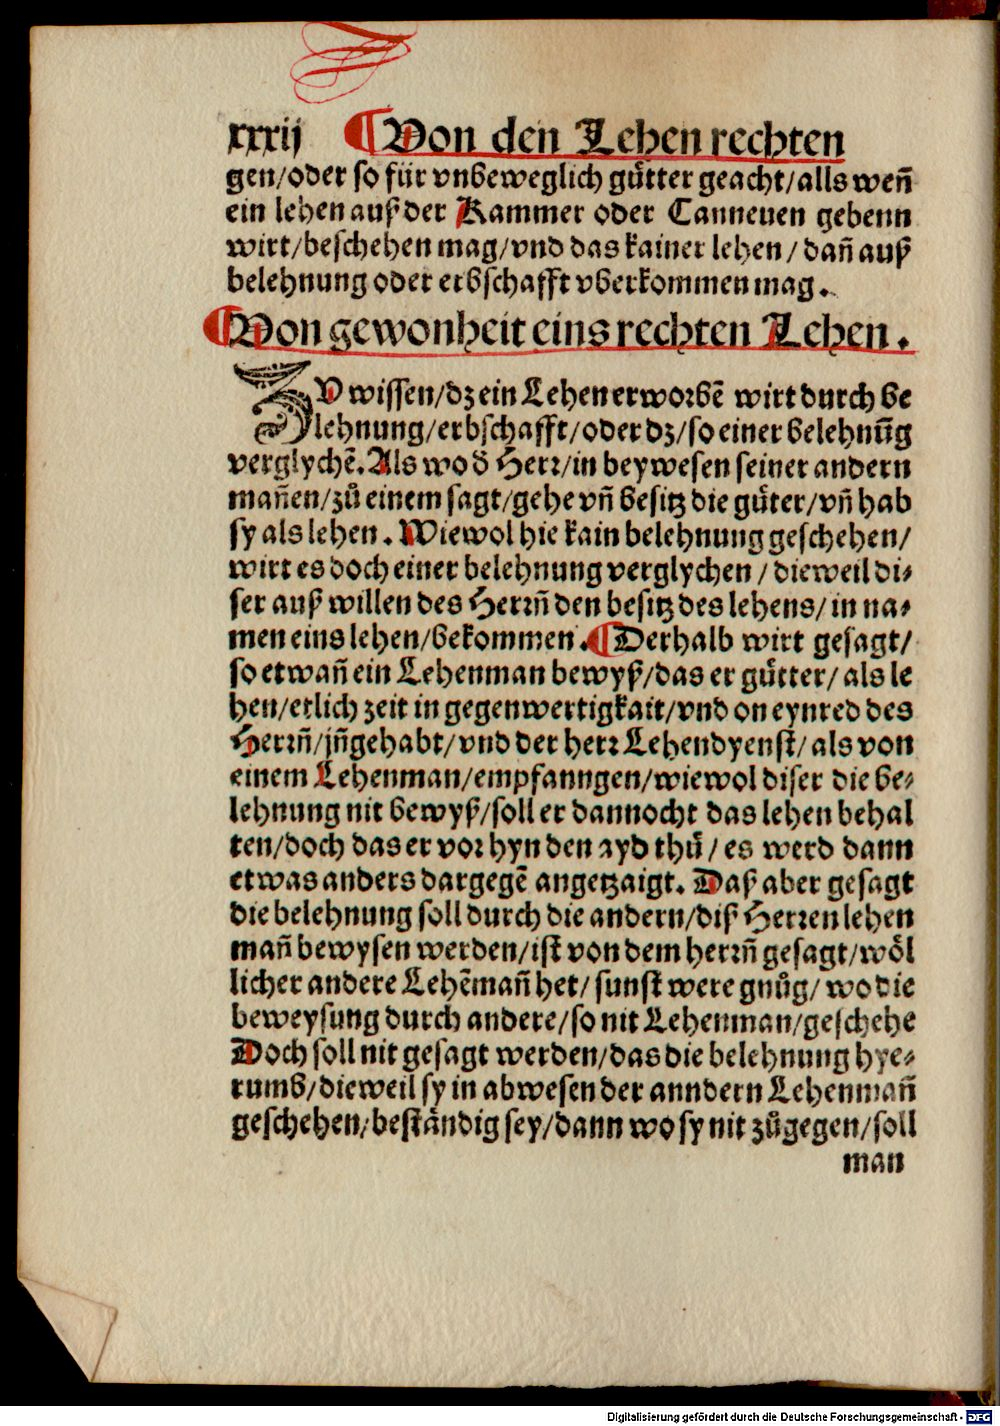 xxxij ¶Von den Lehen rechten
gen/oder so für vnbeweglich gůtter geacht/alls weñ
ein lehen auß der Kammer oder Canneuen gebenn
wirt/beschehen mag/vnd das kainer lehen/dañ auß
belehnung oder erbschafft vberkommen mag.
¶Von gewonheit eins rechten Lehen.
ZV wissen/dz ein Lehen erworbē wirt durch be
lehnung/erbschafft/oder dz/so einer belehnūg
verglychē. Als wo d̄ Herr/in beywesen seiner andern
mañen/zů einem sagt/gehe vñ besitz die gůter/vñ hab
sy als lehen. Wiewol hie kain belehnung geschehen/
wirt es doch einer belehnung verglychen/dieweil di⸗
ser auß willen des Herrñ den besitz des lehens/in na⸗
men eins lehen/bekommen. ¶Derhalb wirt gesagt/
so etwañ ein Lehenman bewyß/das er gůtter/als le
hen/etlich zeit in gegenwertigkait/vnd on eynred des
Herrñ/jñgehabt/vnd der herr Lehendyenst/als von
einem Lehenman/empfanngen/wiewol diser die be⸗
lehnung nit bewyß/soll er dannocht das lehen behal
ten/doch das er vor hyn den ayd thů/es werd dann
etwas anders dargegē angetzaigt. Daß aber gesagt
die belehnung soll durch die andern/diß Herren lehen
mañ bewysen werden/ist von dem herrñ gesagt/wöl
licher andere Lehēmañ het/sunst were gnůg/wo die
beweysung durch andere/so nit Lehenman/geschehe
Doch soll nit gesagt werden/das die belehnung hye⸗
rumb/dieweil sy in abwesen der anndern Lehenmañ
geschehen/beständig sey/dann wo sy nit zůgegen/soll
man
Digitalisierung gefördert durch die Deutsche Forschungsgemeinschaft - DFG